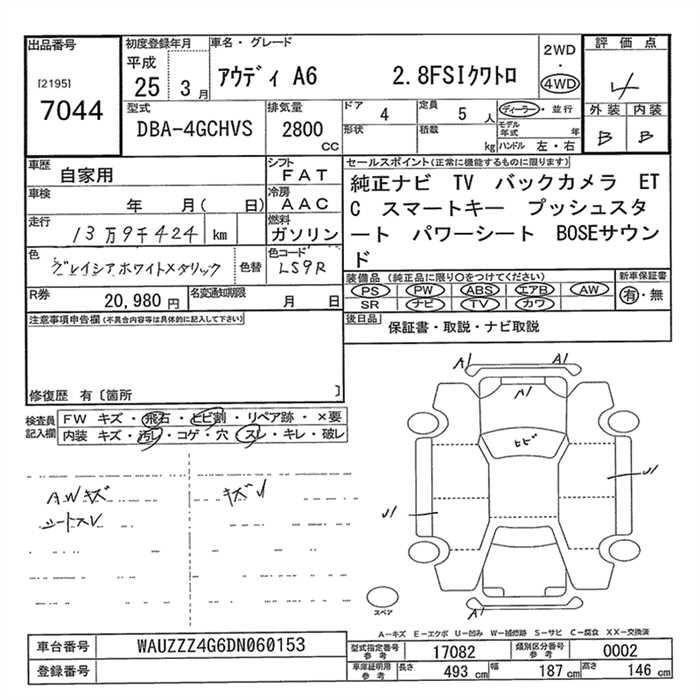 出品番号 初度登録年月 車名・グレード 評価点
[2195] 7044
平成 25 3月
アウディ A6 2.8FSIクワトロ
2WD
・
4WD
4
外装 内装
B B
型式 排気量 ドア 4 定員 5人 ディーラー・並行
DBA-4GCHVS 2800 cc
形状 積載 kg モデル年式 年 ハンドル 左・右
車歴 自家用 シフト FAT
車検 年 月( 日) 冷房 AAC
走行 13万9千424 km 燃料 ガソリン
色 グレイシアホワイトメタリック 色替 色コード LS9R
R券 20,980円 名変通知期限 月 日
セールスポイント(正常に機能するものに限ります)
純正ナビ TV バックカメラ ET
C スマートキー プッシュスタ
ート パワーシート BOSEサウン
ド
装備品 (純正品に限り○をつけてください) 新車保証書
PS PW ABS エアB AW 有・無
SR ナビ TV カワ
後日品 保証書・取説・ナビ取説
注意事項申告欄 (不具合内容等は具体的に記入して下さい)
修復歴 有〔箇所 〕
検査員記入欄
FW キズ・飛石・ヒビ割・リペア跡・×要
内装 キズ・汚レ・コゲ・穴・スレ・キレ・破レ
AWキズ キズU
シートスレ
A1 A1
A1
ヒビ
U1
U1
スペア
A1
A-キズ E-エクボ U-凹み W-補修跡 S-サビ C-腐食 XX-交換済
車台番号 WAUZZZ4G6DN060153
登録番号
型式指定番号参考 17082 類別区分番号参考 0002
車庫証明用参考 長さ 493cm 幅 187cm 高さ 146cm